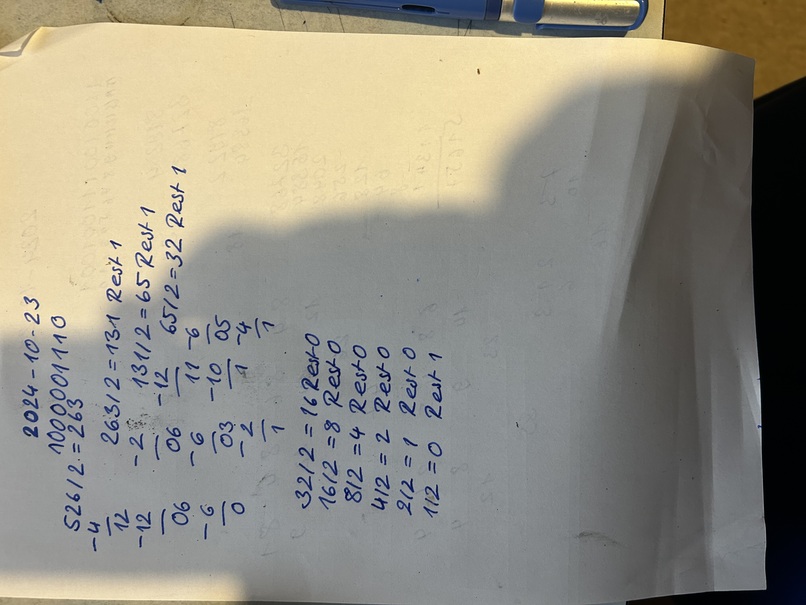 2024-10-23
1000001110
526/2=263
-4
12 263/2=131 Rest 1
-12 -2 131/2=65 Rest 1
06 06 -12 65/2=32 Rest 1
-6 -6 11 -6
0 03 -10 05
-2 1 -4
1 1
32/2=16 Rest 0
16/2=8 Rest 0
8/2=4 Rest 0
4/2=2 Rest 0
2/2=1 Rest 0
1/2=0 Rest 1